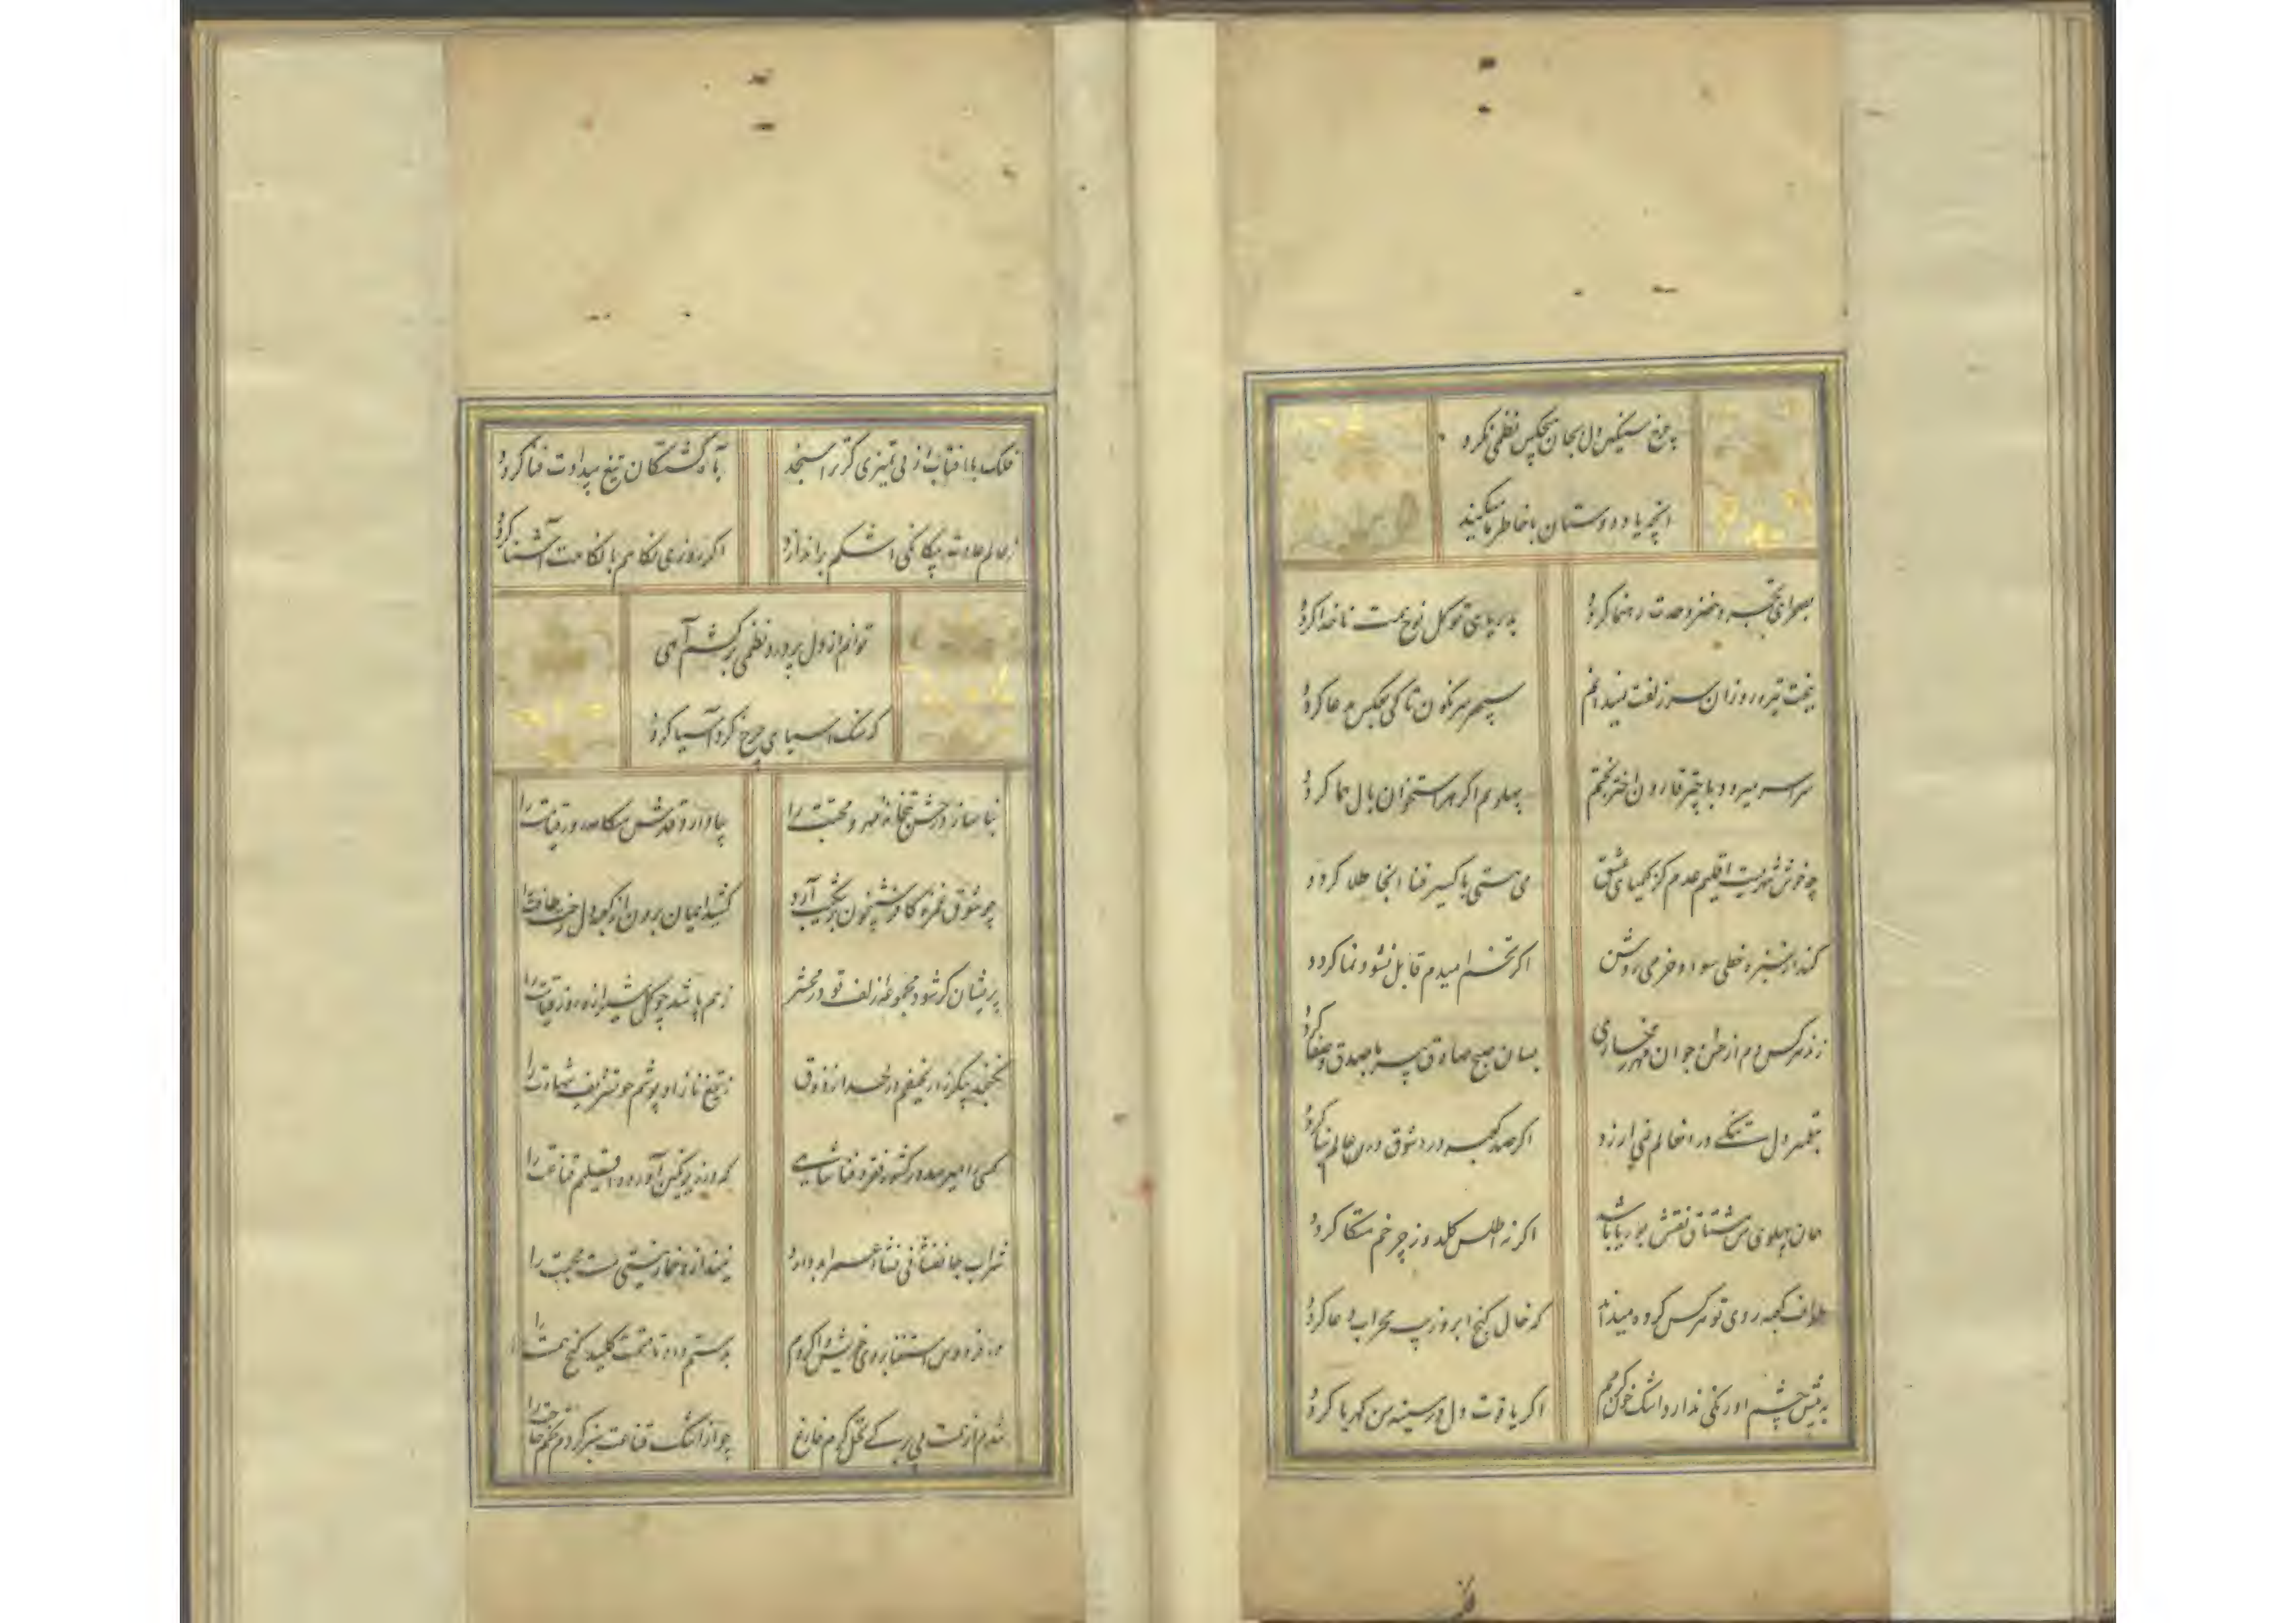 چرخ سنگین دل بجان هیچکس نظمی نکرد
آنچه یاد دوستان با خاطر ما میکند
بصحرای تجرد خضر وحدت رهنما گردد بدریای توکل نوح همت ناخدا گردد
ببخت تیره روزان سر زلفت نمیدانم سپهر سرنگون تا کی بعکس مدعا گردد
سراسر میرود با چتر قارون اختر بختم بپهلویم اگر هر استخوان بال هما گردد
چه خوش شهریست اقلیم عدم کز کیمیای عشق مس هستی باکسیر فنا آنجا طلا گردد
کند از سبزه خطی سواد خرمی روشن اگر تخم امیدم قابل نشو و نما گردد
زند هر کس دم از بسان صبح صادق پیر با صدق و صفا گردد
دل در آن عالم نمی ارزد اگر صد کعبه در دشوق در عالم بنا گردد
همان پهلوی من مشتاق نقش بوریا باشد اگر ز اطلس گلدوز چرخم متکا گردد
طواف کعبه روی تو هر کس کرده میداند که خال کنج ابرو زیب محراب دعا گردد
به پیش چشم او رنگی ندارد اشک خون گرمم اگر یاقوت دل در سینه من کهربا گردد
فلک با آفتاب از بی تمیزی گر ترا سنجد بآه کشتگان تیغ بیدادت فنا گردد
ز عالم عادت بیگانگی اشکم براندازد اگر روزی نگاهم با نگاهت آشنا گردد
توانم از دل پر درد نظمی بر کشم آهی
که سنگ آسیای چرخ گرد آسیا گردد
بنا سازد حسن بتخانه مهر و محبت را بپا دارد قدش هنگامه روز قیامت را
چو شوق غمزه کافر شبیخون بر آرد کشد ایمان برون از کعبه دل رخت طاعت را
پریشان گر شود مجموعه زلف تو در محشر ز هم پاشد چو گل شیرازه روز قیامت را
نگنجد پیکر زار نحیفم در لحد از ذوق ز تیغ ناز او پوشم چو تشریف شهادت را
کسی را میرسد در کشور فقر و فنا شاهی که در زیر نگین آورده اقلیم قناعت را
شراب جانفشانی نشأه عمر ابد دارد نیندازد خمار نیستی مست محبت را
در فردوس استغنا بروی خویش وا کردم بدستم داده تا بخت کلید گنج همت را
شدم از همت بی برگی نخل کرم فارغ چو از اشک قناعت سبز کردم تخم حاجت را